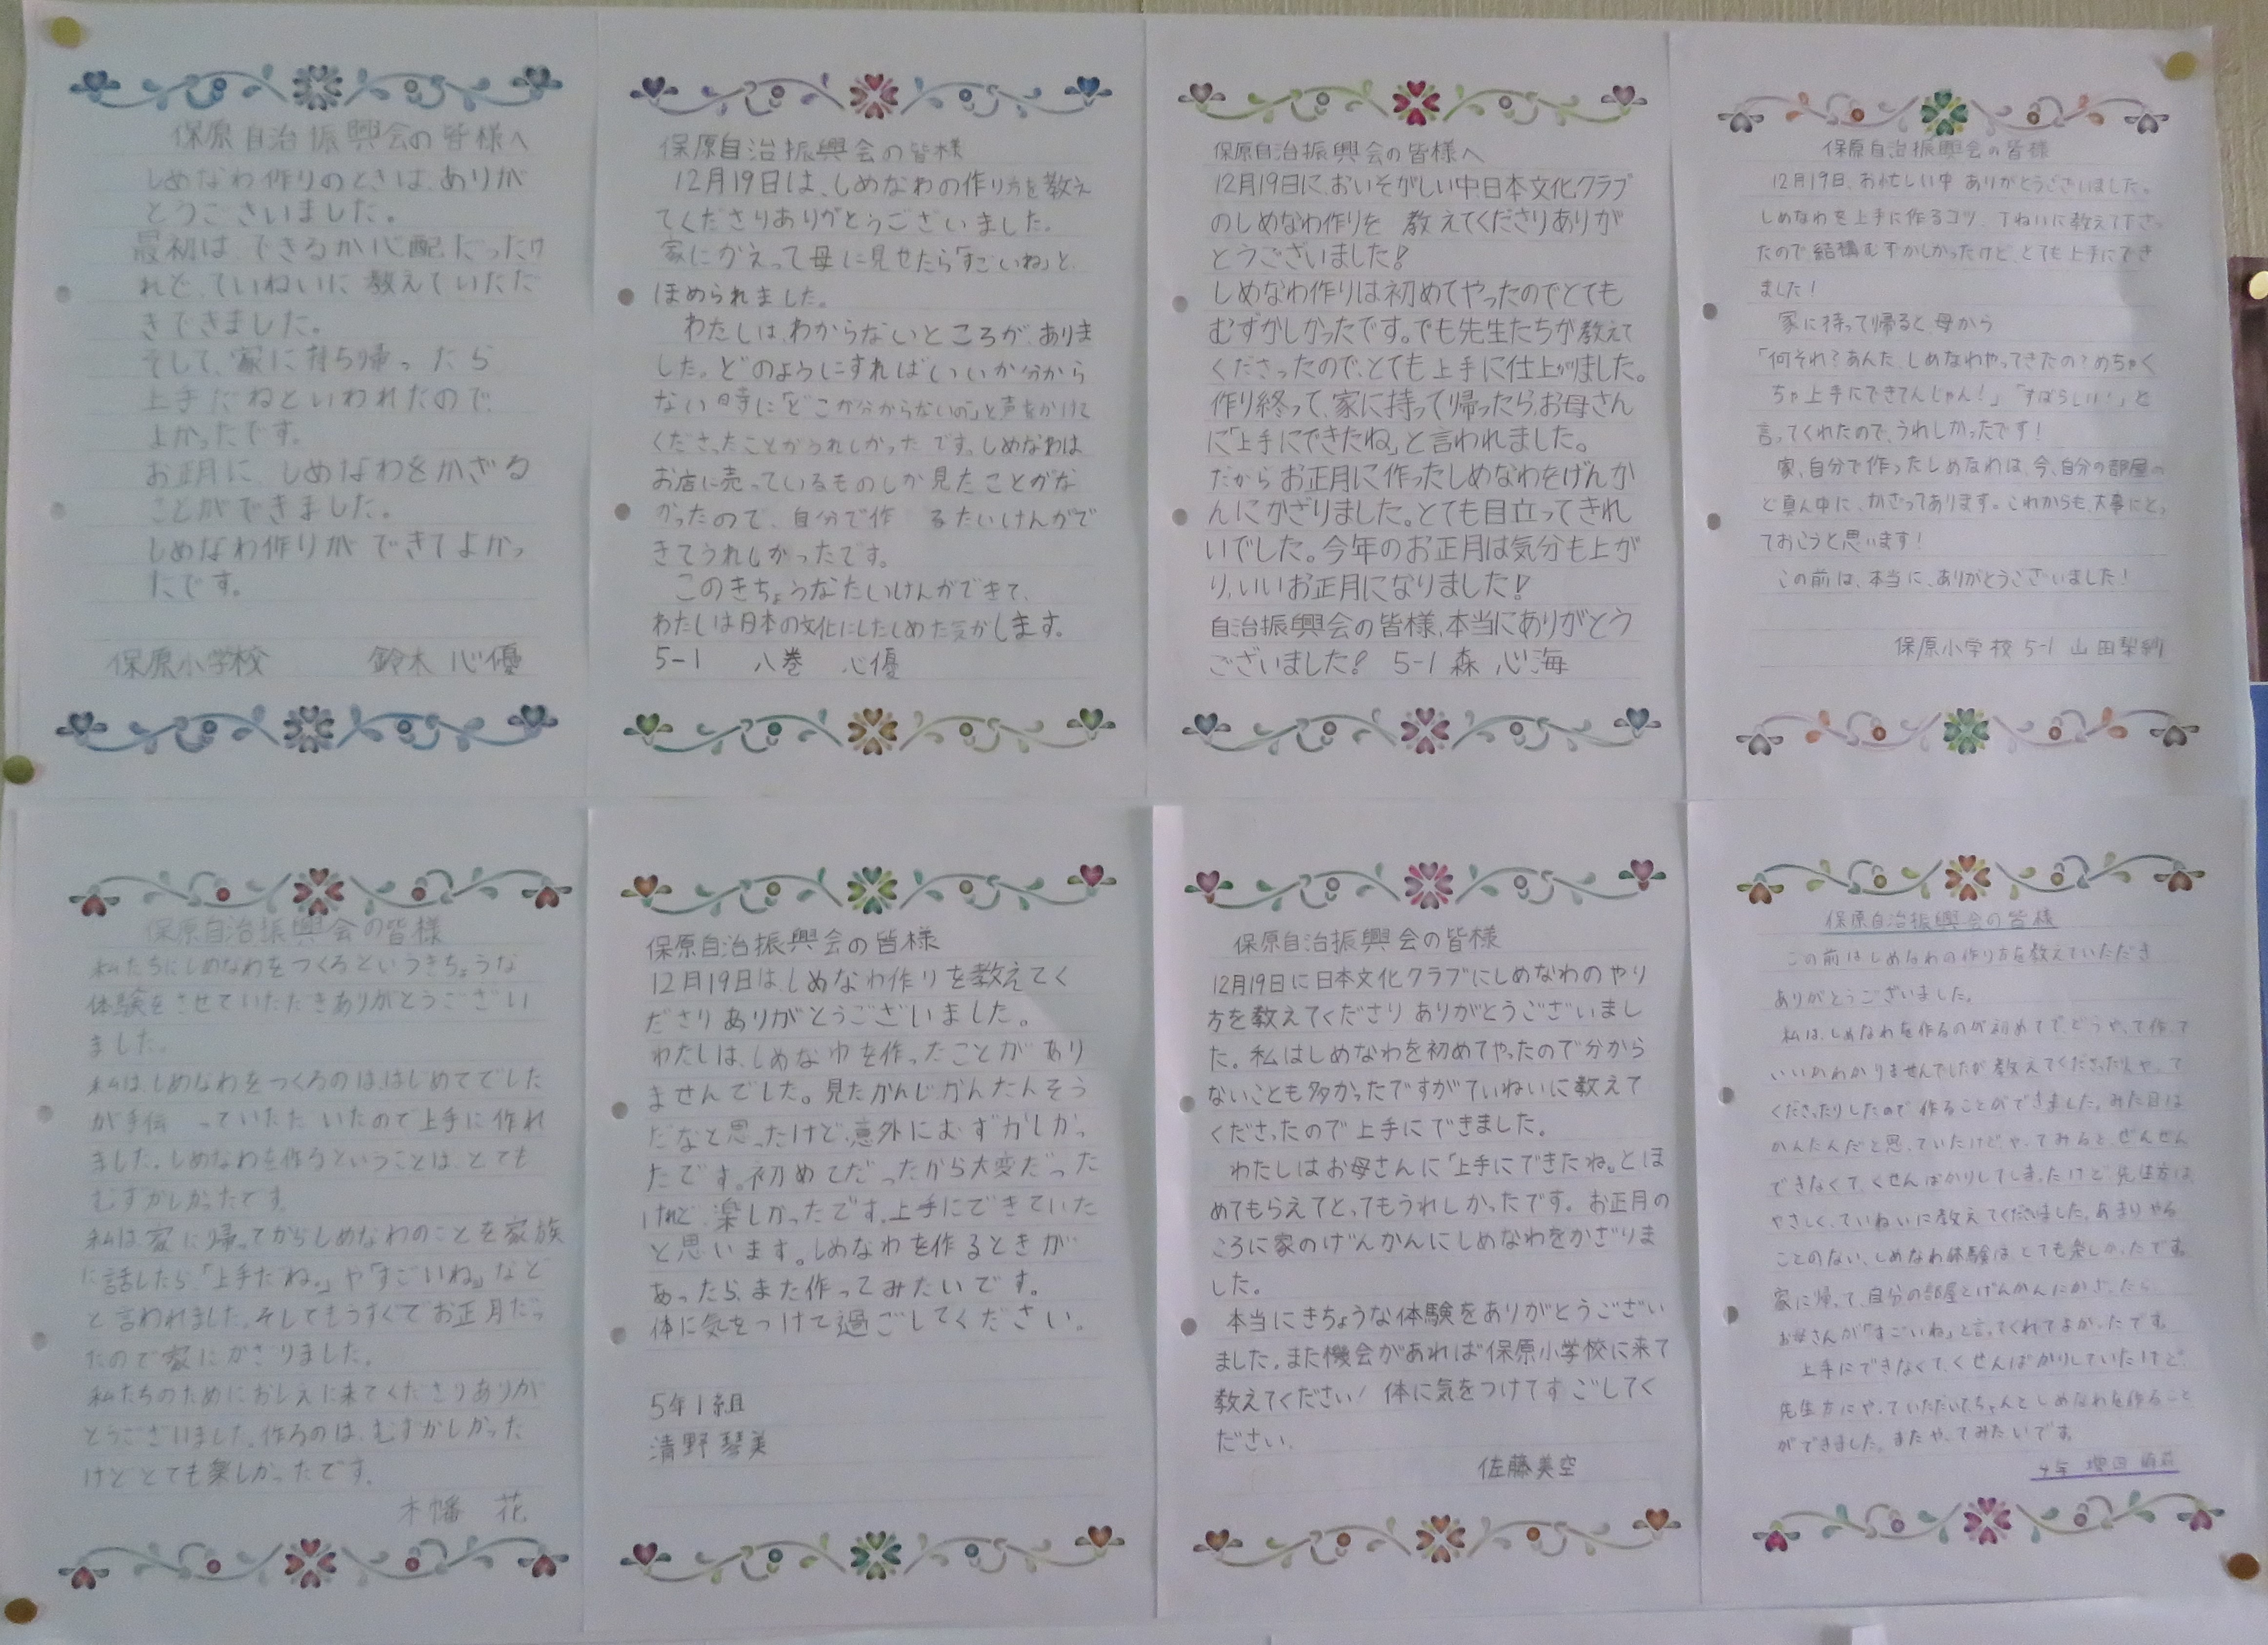 保原自治振興会の皆様へ
しめなわ作りのときは、ありが
とうございました。
最初は、できるか心配だったけ
れど、ていねいに教えていただ
きできました。
そして、家に持ち帰ったら
上手だねといわれたので、
よかったです。
お正月に、しめなわをかざる
ことができました。
しめなわ作りができてよかっ
たです。
保原小学校 鈴木 心優
保原自治振興会の皆様
12月19日は、しめなわの作り方を教え
てくださりありがとうございました。
家にかえって母に見せたら「すごいね」と、
ほめられました。
わたしは、わからないところが、ありま
した。どのようにすればいいか分から
ない時に「どこが分からないの」と声をかけて
くださったことがうれしかったです。しめなわは
お店に売っているものしか見たことがな
かったので、自分で作るたいけんがで
きてうれしかったです。
このきちょうなたいけんができて、
わたしは日本の文化にしたしめた気がします。
5-1 八巻 心優
保原自治振興会の皆様へ
12月19日に、おいそがしい中、日本文化クラブ
のしめなわ作りを 教えてくださりありが
とうございました!
しめなわ作りは初めてやったのでとても
むずかしかったです。でも先生たちが教えて
くださったので、とても上手に仕上がました。
作り終って、家に持って帰ったら、お母さん
に「上手にできたね」と言われました。
だからお正月に作ったしめなわをげんか
んにかざりました。とても目立ってきれ
いでした。今年のお正月は気分も上が
り、いいお正月になりました!
自治振興会の皆様、本当にありがとう
ございました! 5-1 森 心海
保原自治振興会の皆様
12月19日、お忙しい中 ありがとうございました。
しめなわを上手に作るコツ、丁ねいに教えて下さっ
たので結構むずかしかったけど、とても上手にでき
ました!
家に持って帰ると、母から
「何それ?あんた、しめなわやってきたの?めちゃく
ちゃ上手にできてんじゃん!」「すばらしい!」と
言ってくれたので、うれしかったです!
家、自分で作ったしめなわは、今、自分の部屋の
ど真ん中に、かざってあります。これからも、大事にとっ
ておこうと思います!
この前は、本当に、ありがとうございました!
保原小学校 5-1 山田梨紗
保原自治振興会の皆様
私たちにしめなわをつくるというきちょうな
体験をさせていただきありがとうござい
ました。
私は、しめなわをつくるのは、はじめてでした
が手伝っていただいたので上手に作れ
ました。しめなわを作るということは、とても
むずかしかったです。
私は、家に帰ってからしめなわのことを家族
に話したら「上手だね。」や「すごいね」など
と言われました。そしてもうすぐでお正月だっ
たので家にかざりました。
私たちのためにおしえに来てくださりありが
とうございました。作るのは、むずかしかった
けどとても楽しかったです。
木幡 花
保原自治振興会の皆様
12月19日は、しめなわ作りを教えてく
ださりありがとうございました。
わたしは、しめなわを作ったことがあり
ませんでした。見たかんじかんたんそう
だなと思ったけど、意外にむずかしかっ
たです。初めてだったから大変だった
けれど、楽しかったです。上手にできていた
と思います。しめなわを作るときが
あったら、また作ってみたいです。
体に気をつけて過ごしてください。
5年1組
清野琴美
保原自治振興会の皆様
12月19日に日本文化クラブにしめなわのやり
方を教えてくださりありがとうございまし
た。私はしめなわを初めてやったので分から
ないことも多かったですがていねいに教えて
くださったので上手にできました。
わたしはお母さんに「上手にできたね。」とほ
めてもらえてとってもうれしかったです。お正月の
ころに家のげんかんにしめなわをかざりま
した。
本当にきちょうな体験をありがとうござい
ました。また機会があれば保原小学校に来て
教えてください! 体に気をつけてすごしてく
ださい。
佐藤美空
保原自治振興会の皆様
この前はしめなわの作り方を教えていただき
ありがとうございました。
私は、しめなわを作るのが初めてで、どうやって作って
いいかわかりませんでしたが教えてくださったりやって
くださったりしたので作ることができました。みた目は
かんたんだと思っていたけどやってみると、ぜんぜん
できなくて、くせんばかりしてしまったけど先生方は、
やさしく、ていねいに教えてくださいました。あまりやる
ことのない、しめなわ体験はとても楽しかったです。
家に帰って、自分の部屋とげんかんにかざったら、
お母さんが「すごいね」と言ってくれてよかったです。
上手にできなくて、くせんばかりしていたけど、
先生方にやっていただいて、ちゃんとしめなわを作ること
ができました。またやってみたいです。
4年 増田